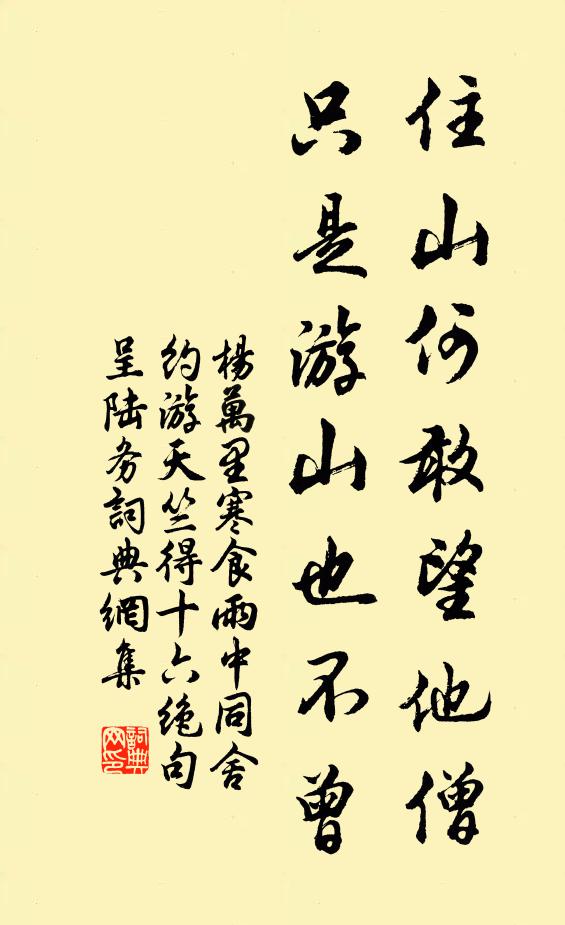 住山何敢望他僧
只是游山也不曾
楊萬里寒食雨中同舍
約游天竺得十六絶句
呈陆务詞典網集
詞典
网印